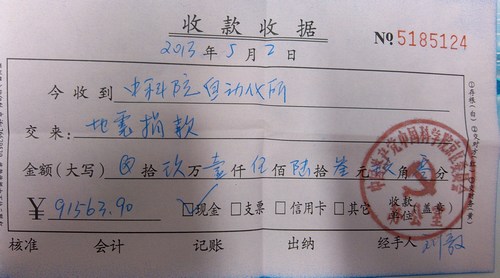 收款收据
2013年5月2日
№5185124
今收到 中科院自动化所
交来: 地震捐款
金额(大写) 拾玖万壹仟伍佰陆拾叁元玖角零分
¥ 91563.90 ☑现金 □支票 □信用卡 □其它 收款单位(盖章)
核准 会计 记账 出纳 经手人 刘毅